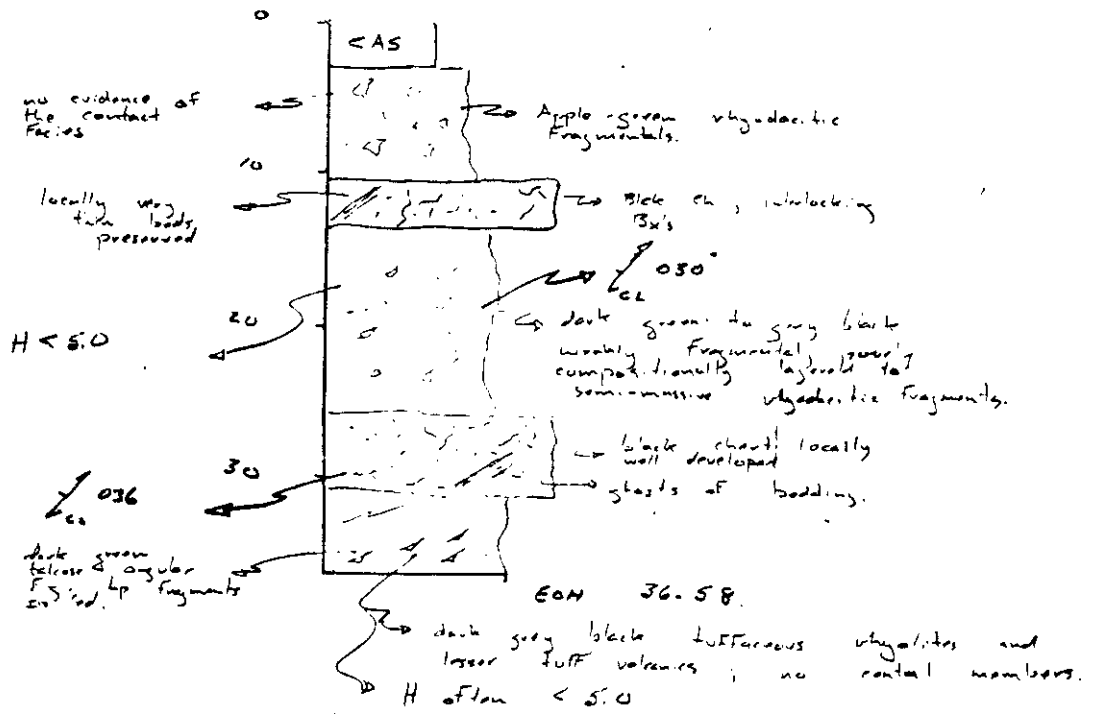 0
< AS
no evidence of
the contact
Facies
Apple-green rhyodacitic
Fragmentals.
10
locally very
thin beds
preserved
Blck ch, interlocking
Bx's
030°
CL
20
H < 5.0
dark green to grey black
weakly Fragmental
compositionally layered to
semi-massive rhyodacitic Fragments.
black chert! locally
well developed
ghosts of bedding.
30
036
dark green
talcose angular
Lp Fragments
EOH 36.58.
dark grey black tuffaceous rhyolites and
lesser tuff volcanics ; no members.
H often < 5.0